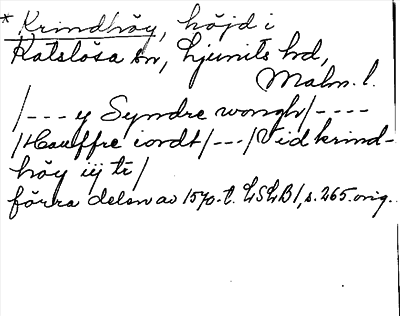 * Krindhöy, höjd i
Katslösa sn, Ljunits hd,
Malm. l.
/--- y Syndre wongh/----
/Hauffre iordt/---/Vid krind-
höy iij te/
förra delen av 1570-t. LSLB I, s. 265. orig.